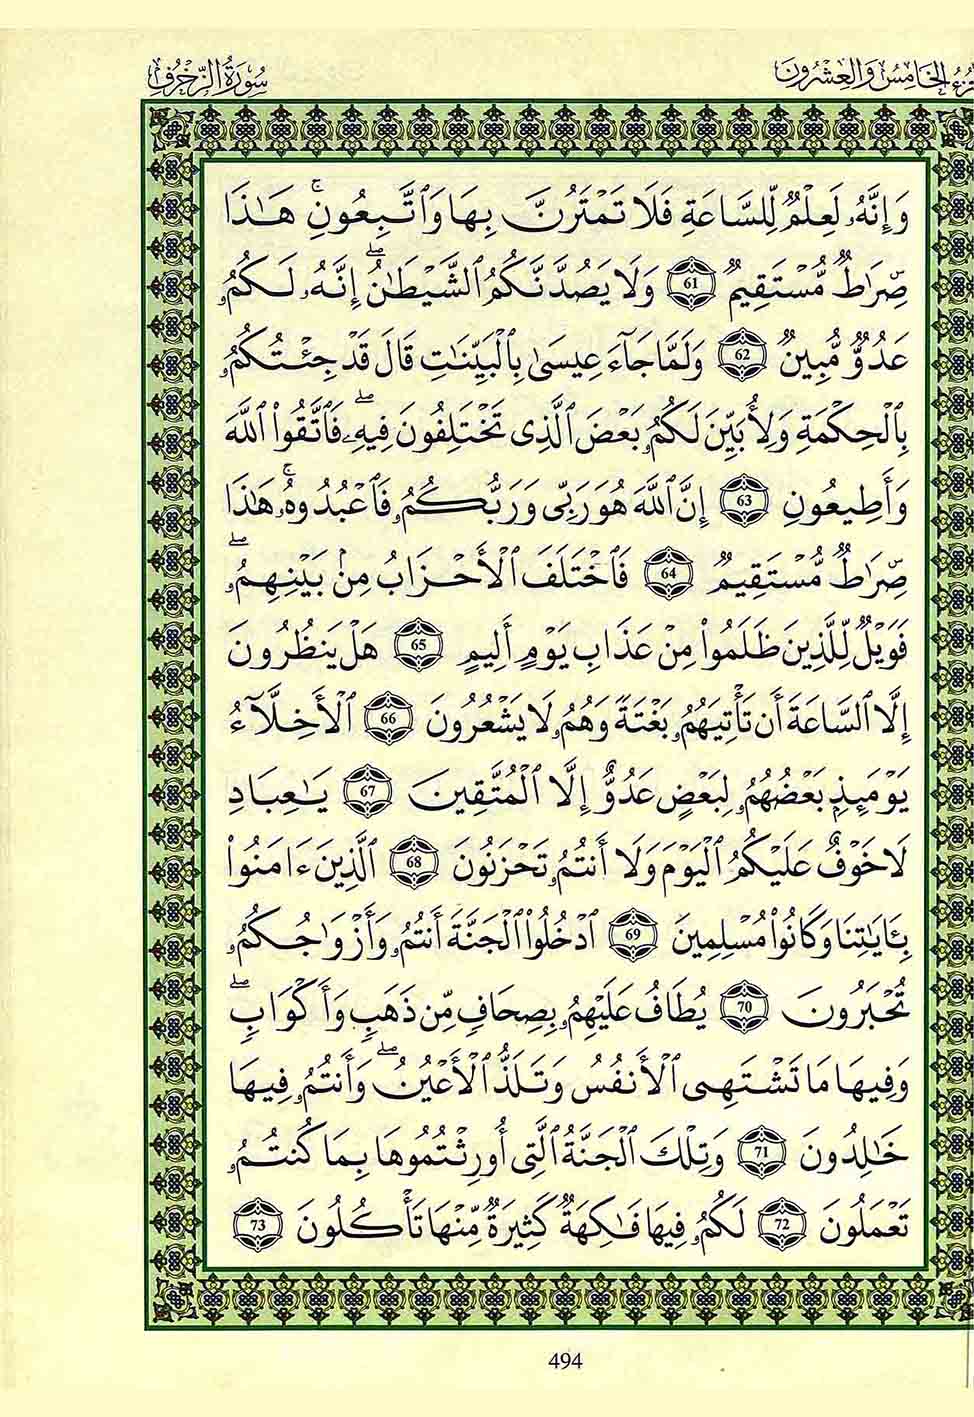 الجزء الخامس والعشرون
سورة الزخرف
وَإِنَّهُۥ لَعِلْمٌ لِّلسَّاعَةِ فَلَا تَمْتَرُنَّ بِهَا وَٱتَّبِعُونِۚ هَٰذَا
صِرَٰطٌ مُّسْتَقِيمٌ 61 وَلَا يَصُدَّنَّكُمُ ٱلشَّيْطَٰنُۖ إِنَّهُۥ لَكُمُۥ
عَدُوٌّ مُّبِينٌ 62 وَلَمَّا جَآءَ عِيسَىٰ بِٱلْبَيِّنَٰتِ قَالَ قَدْ جِئْتُكُمُۥ
بِٱلْحِكْمَةِ وَلِأُبَيِّنَ لَكُمُۥ بَعْضَ ٱلَّذِى تَخْتَلِفُونَ فِيهِۦۖ فَٱتَّقُوا۟ ٱللَّهَ
وَأَطِيعُونِ 63 إِنَّ ٱللَّهَ هُوَ رَبِّى وَرَبُّكُمُۥ فَٱعْبُدُوهُۥۚ هَٰذَا
صِرَٰطٌ مُّسْتَقِيمٌ 64 فَٱخْتَلَفَ ٱلْأَحْزَابُ مِنۢ بَيْنِهِمُۥۖ
فَوَيْلٌ لِّلَّذِينَ ظَلَمُوا۟ مِنْ عَذَابِ يَوْمٍ أَلِيمٍ 65 هَلْ يَنظُرُونَ
إِلَّا ٱلسَّاعَةَ أَن تَأْتِيَهُمُۥ بَغْتَةً وَهُمُۥ لَا يَشْعُرُونَ 66 ٱلْأَخِلَّآءُ
يَوْمَئِذٍۭ بَعْضُهُمُۥ لِبَعْضٍ عَدُوٌّ إِلَّا ٱلْمُتَّقِينَ 67 يَٰعِبَادِ
لَا خَوْفٌ عَلَيْكُمُ ٱلْيَوْمَ وَلَا أَنتُمُۥ تَحْزَنُونَ 68 ٱلَّذِينَ ءَامَنُوا۟
بِـَٔايَٰتِنَا وَكَانُوا۟ مُسْلِمِينَ 69 ٱدْخُلُوا۟ ٱلْجَنَّةَ أَنتُمُۥ وَأَزْوَٰجُكُمُۥ
تُحْبَرُونَ 70 يُطَافُ عَلَيْهِمُۥ بِصِحَافٍ مِّن ذَهَبٍ وَأَكْوَابٍۖ
وَفِيهَا مَا تَشْتَهِى ٱلْأَنفُسُ وَتَلَذُّ ٱلْأَعْيُنُۖ وَأَنتُمُۥ فِيهَا
خَٰلِدُونَ 71 وَتِلْكَ ٱلْجَنَّةُ ٱلَّتِى أُورِثْتُمُوهَا بِمَا كُنتُمُۥ
تَعْمَلُونَ 72 لَكُمُۥ فِيهَا فَٰكِهَةٌ كَثِيرَةٌ مِّنْهَا تَأْكُلُونَ 73
494